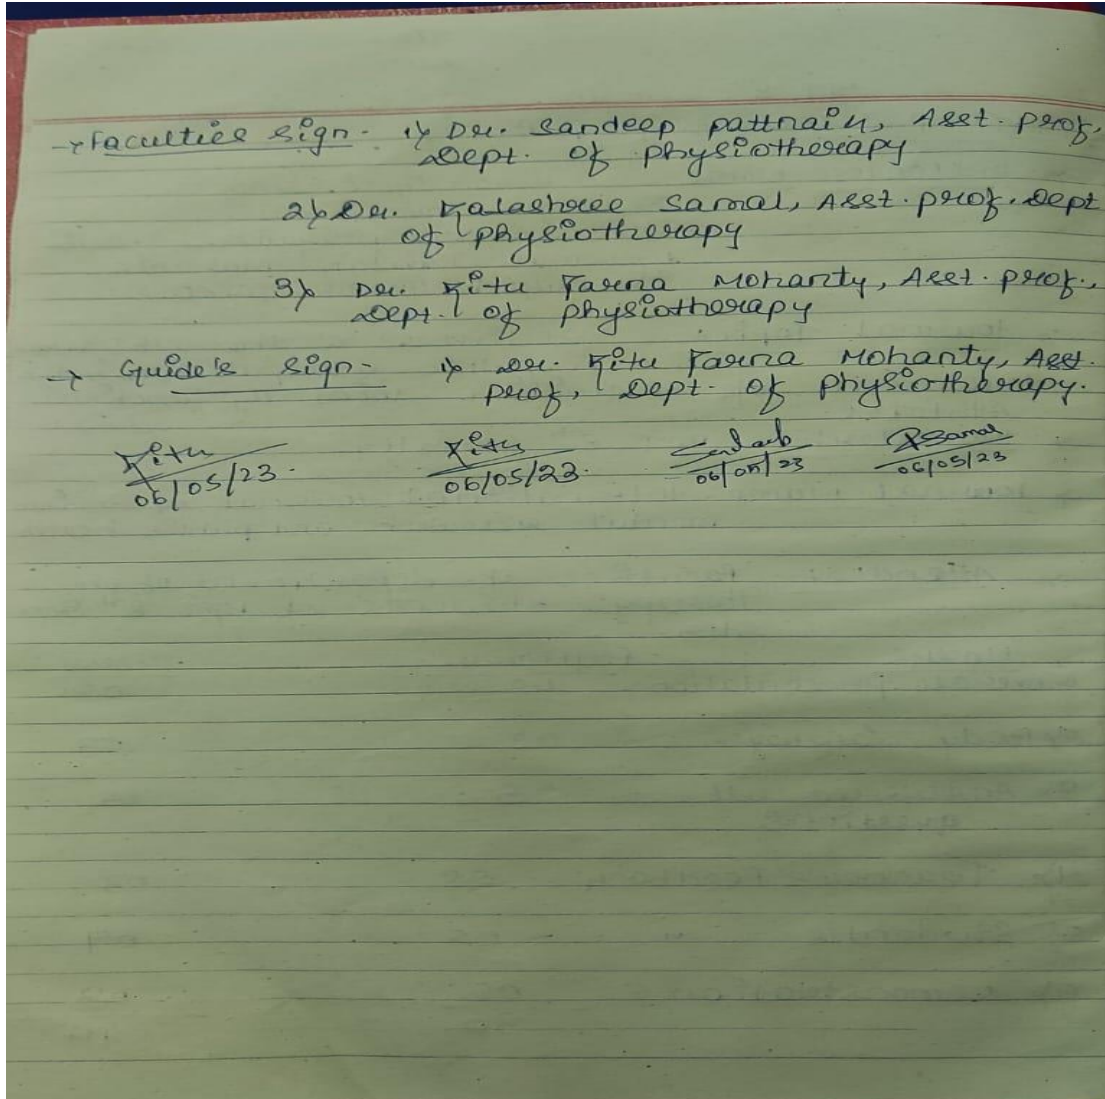 → Faculties sign - 1) Dr. Sandeep pattnaik, Asst. prof,
Dept. of physiotherapy
2) Dr. Rajashree Samal, Asst. prof. Dept
of physiotherapy
3) Dr. Ritu Parna Mohanty, Asst. prof.,
Dept. of physiotherapy
→ Guide's sign - 1) Dr. Ritu Parna Mohanty, Asst.
prof, Dept. of physiotherapy.
Ritu Ritu RSamal
06/05/23. 06/05/23. 06/05/23 06/05/23